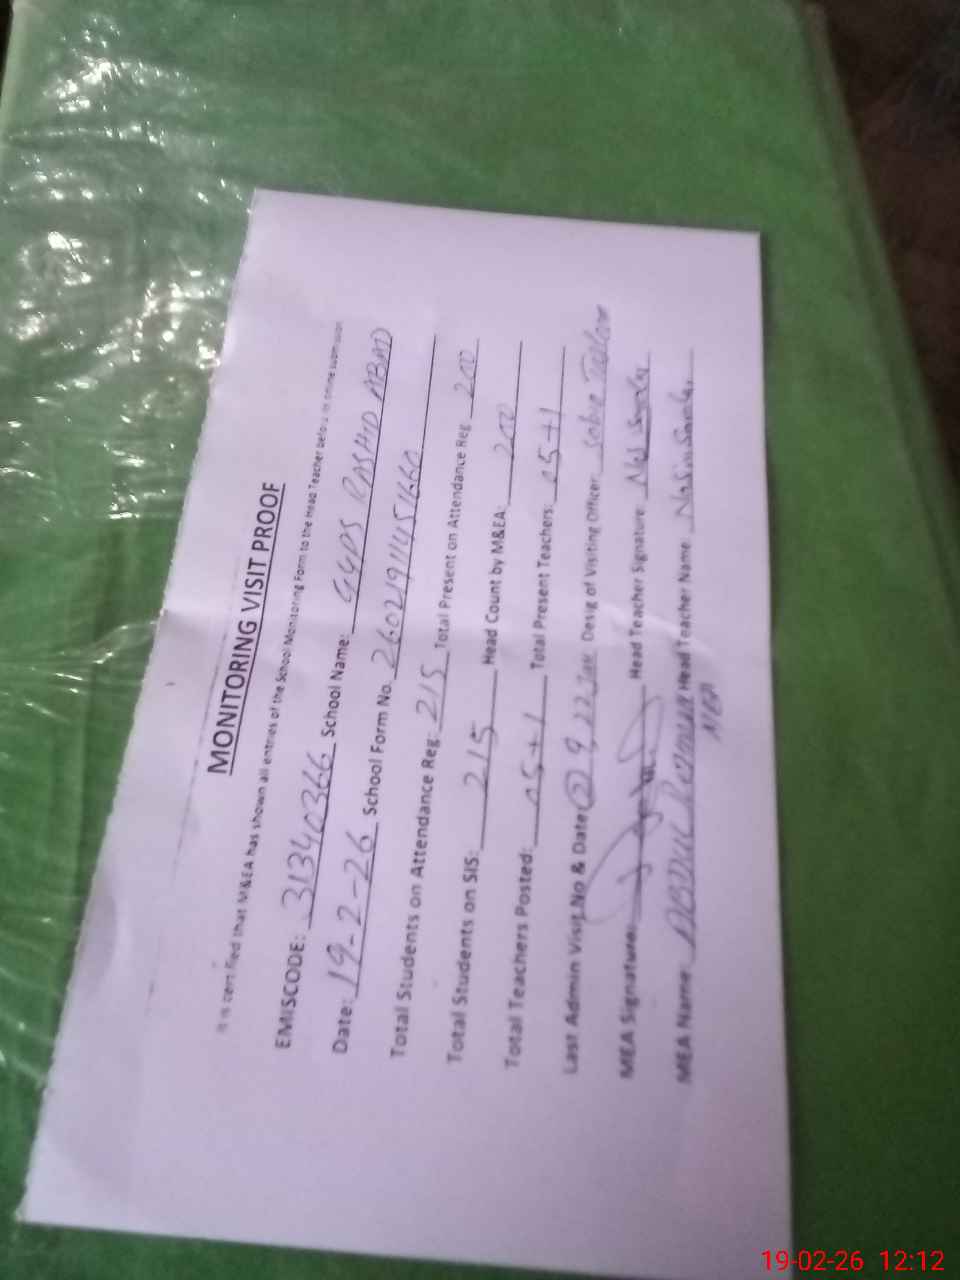 MONITORING VISIT PROOF
It is certified that M&EA has shown all entries of the School Monitoring Form to the Head Teacher before online submission
EMISCODE: 31340366 School Name: GGPS RASHID ABAD
Date: 19-2-26 School Form No. 26021911451660
Total Students on Attendance Reg: 215 Total Present on Attendance Reg 200
Total Students on SIS: 215 Head Count by M&EA: 200
Total Teachers Posted: 05+1 Total Present Teachers: 05+1
Last Admin Visit No & Date 2 9, 22 Jan Desig of Visiting Officer
MEA Signature: Head Teacher Signature
MEA Name: ABDUL REHMAN Head Teacher Name
MEA
19-02-26 12:12